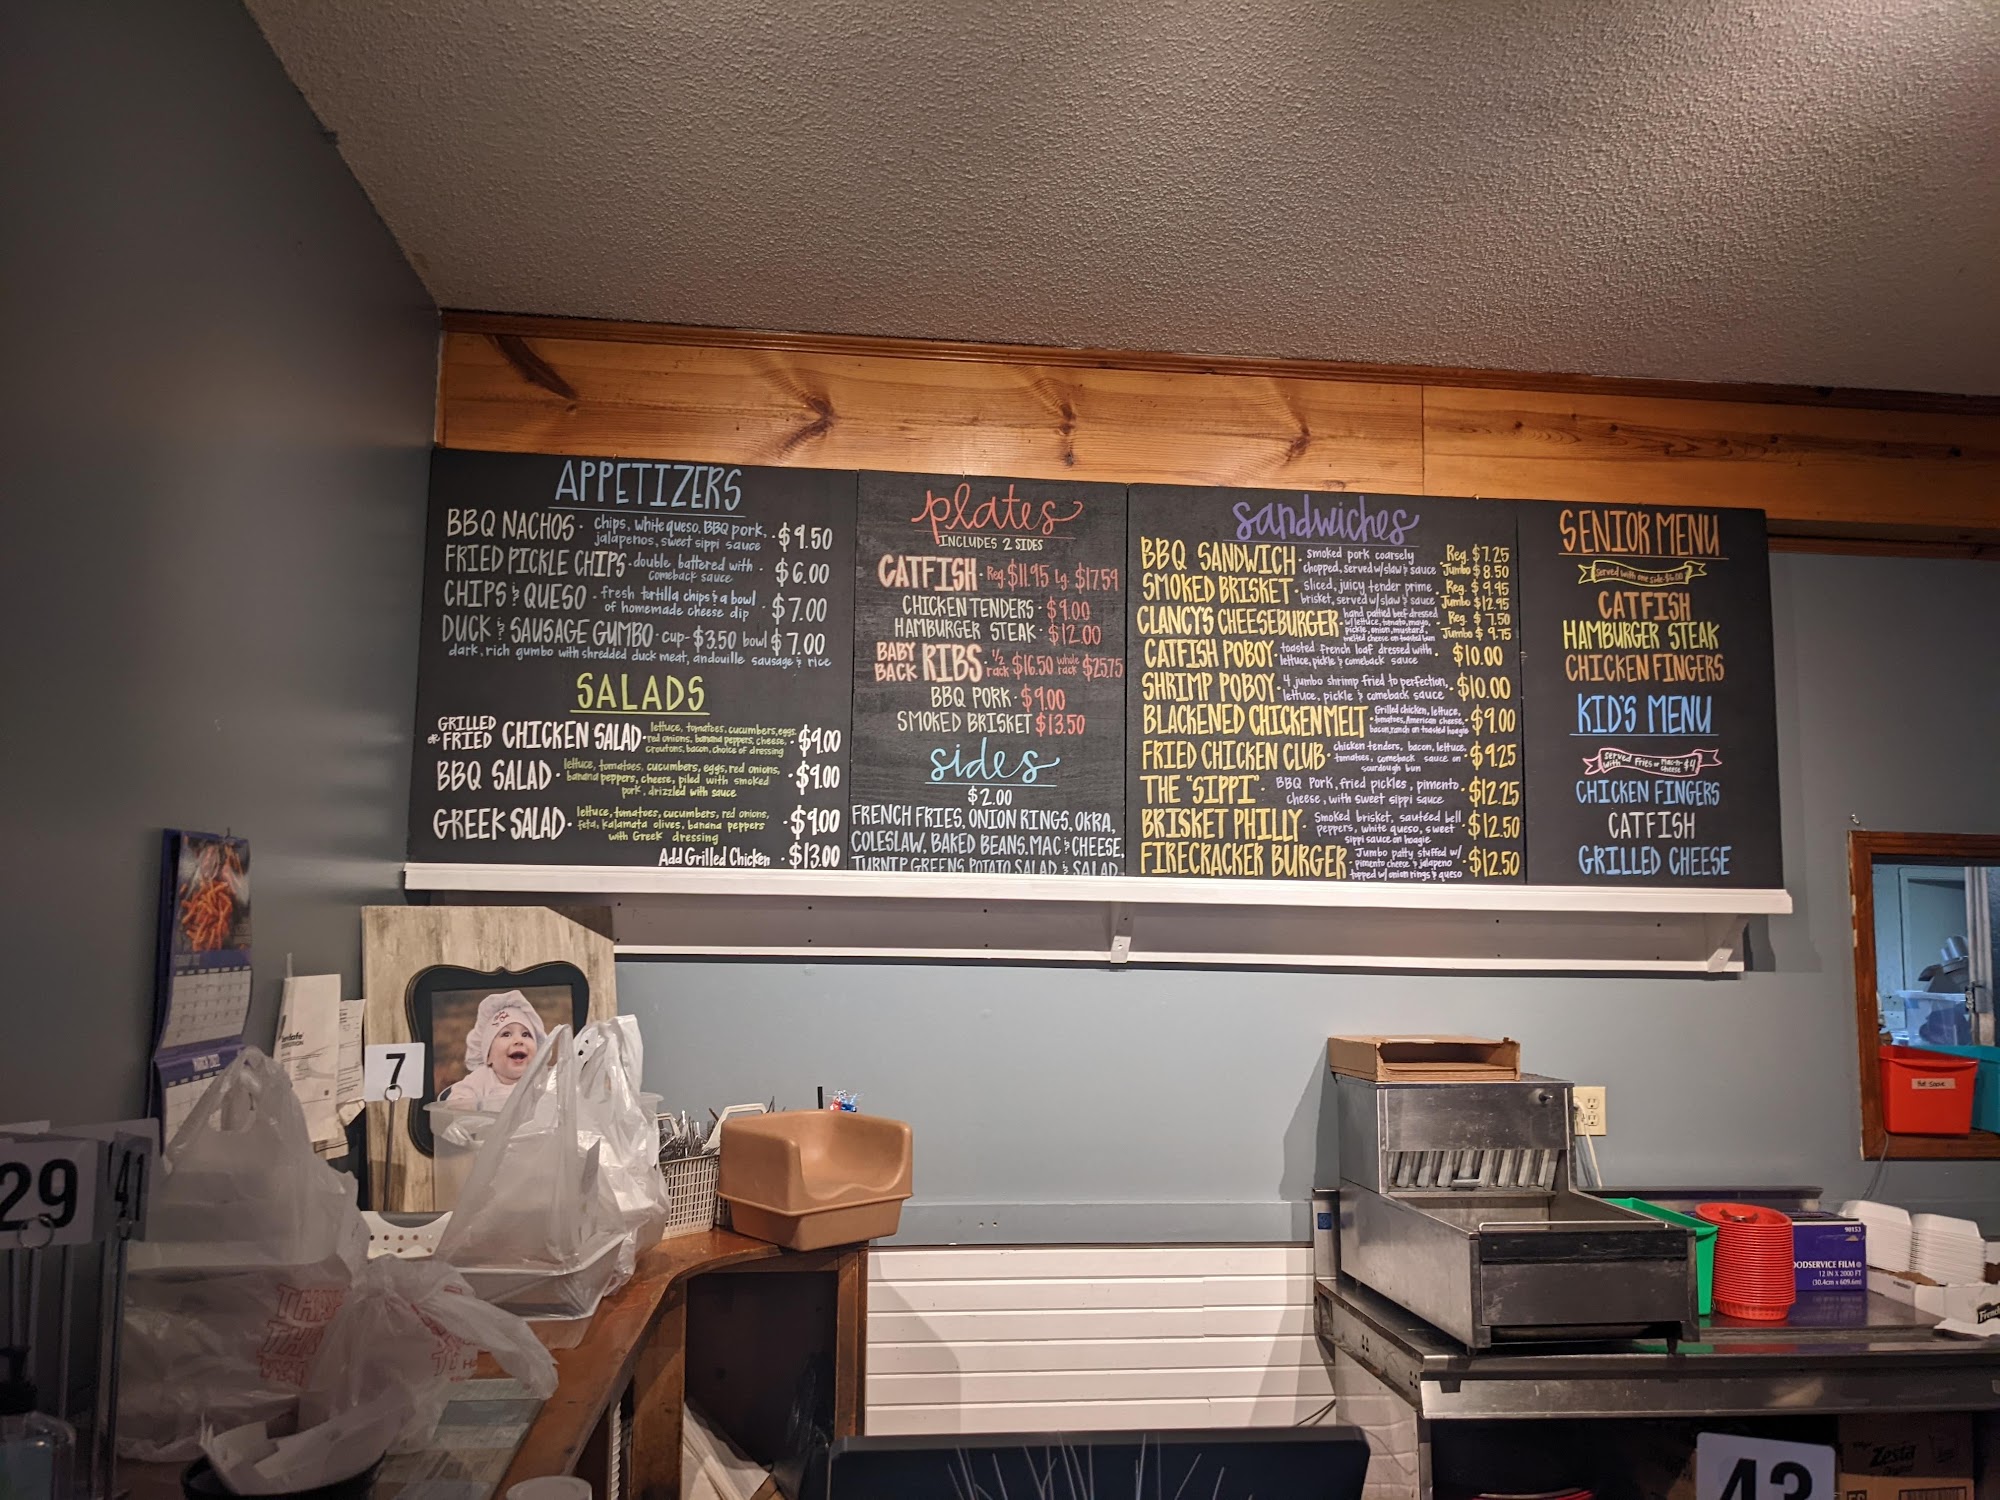 APPETIZERS
BBQ NACHOS · chips, white queso, BBQ pork, · $9.50
jalapenos, sweet sippi sauce
FRIED PICKLE CHIPS · double battered with · $6.00
comeback sauce
CHIPS & QUESO · fresh tortilla chips & a bowl · $7.00
of homemade cheese dip
DUCK & SAUSAGE GUMBO · cup - $3.50 bowl $7.00
dark, rich gumbo with shredded duck meat, andouille sausage & rice
SALADS
GRILLED OR FRIED CHICKEN SALAD · lettuce, tomatoes, cucumbers, eggs, · $9.00
red onions, banana peppers, cheese,
croutons, bacon, choice of dressing
BBQ SALAD · lettuce, tomatoes, cucumbers, eggs, red onions, · $9.00
banana peppers, cheese, piled with smoked
pork, drizzled with sauce
GREEK SALAD · lettuce, tomatoes, cucumbers, red onions, · $9.00
feta, kalamata olives, banana peppers
with Greek dressing
Add Grilled Chicken · $13.00
plates
INCLUDES 2 SIDES
CATFISH · Reg. $11.95 Lg. $17.59
CHICKEN TENDERS · $9.00
HAMBURGER STEAK · $12.00
BABY BACK RIBS · 1/2 rack $16.50 whole rack $25.75
BBQ PORK · $9.00
SMOKED BRISKET $13.50
sides
$2.00
FRENCH FRIES, ONION RINGS, OKRA,
COLESLAW, BAKED BEANS, MAC & CHEESE,
TURNIP GREENS POTATO SALAD & SALAD
sandwiches
BBQ SANDWICH · smoked pork coarsely · Reg. $7.25
chopped, served w/ slaw & sauce Jumbo $8.50
SMOKED BRISKET · sliced, juicy tender prime · Reg. $9.95
brisket, served w/ slaw & sauce Jumbo $12.95
CLANCY'S CHEESEBURGER · hand pattied beef dressed Reg. $7.50
w/ lettuce, tomato, mayo, Jumbo $9.75
pickle, onion, mustard,
melted cheese on toasted bun
CATFISH POBOY · toasted french loaf dressed with · $10.00
lettuce, pickle & comeback sauce
SHRIMP POBOY · 4 jumbo shrimp fried to perfection, · $10.00
lettuce, pickle & comeback sauce
BLACKENED CHICKEN MELT · Grilled chicken, lettuce, · $9.00
tomatoes, American cheese,
bacon, ranch on toasted hoagie
FRIED CHICKEN CLUB · chicken tenders, bacon, lettuce, · $9.25
tomatoes, comeback sauce on
sourdough bun
THE "SIPPI" · BBQ Pork, fried pickles, pimento · $12.25
cheese, with sweet sippi sauce
BRISKET PHILLY · Smoked brisket, sautéed bell · $12.50
peppers, white queso, sweet
sippi sauce on hoagie
FIRECRACKER BURGER · Jumbo patty stuffed w/ · $12.50
pimento cheese & jalapeno
topped w/ onion rings & queso
SENIOR MENU
Served with one side $6.00
CATFISH
HAMBURGER STEAK
CHICKEN FINGERS
KID'S MENU
Served with Fries or Mac-n-cheese $4
CHICKEN FINGERS
CATFISH
GRILLED CHEESE
7
29
41
43
Hot Sauce
90153
FOODSERVICE FILM
12 IN X 2000 FT
(30.4cm x 609.6m)
Zesta